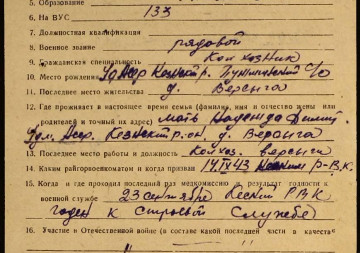 5. Образование
6. На ВУС 133
7. Должностная квалификация
8. Военное звание рядовой
9. Гражданская специальность Колхозник
10. Место рождения Уд Аср Кезнский р. С/С
11. Последнее место жительства д. Версыга
12. Где проживает в настоящее время семья (фамилия, имя и отчество жены или
родителя и точный их адрес) мать Надежда
Удм. Асср. Кезнский р-он, д. Версыга
13. Последнее место работы и должность Колхоз. Версыга
14. Каким райгорвоенкоматом и когда призван 14 IX 43 Кезским Р-В.К.
15. Когда и где проходил последний раз медкомиссию и результат годности к
военной службе 23 сентября Кезский РВК
годен к строевой службе
16. Участие в Отечественной войне (в составе какой последней части в качестве